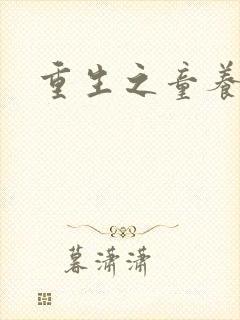 重生之童养
暮潇潇